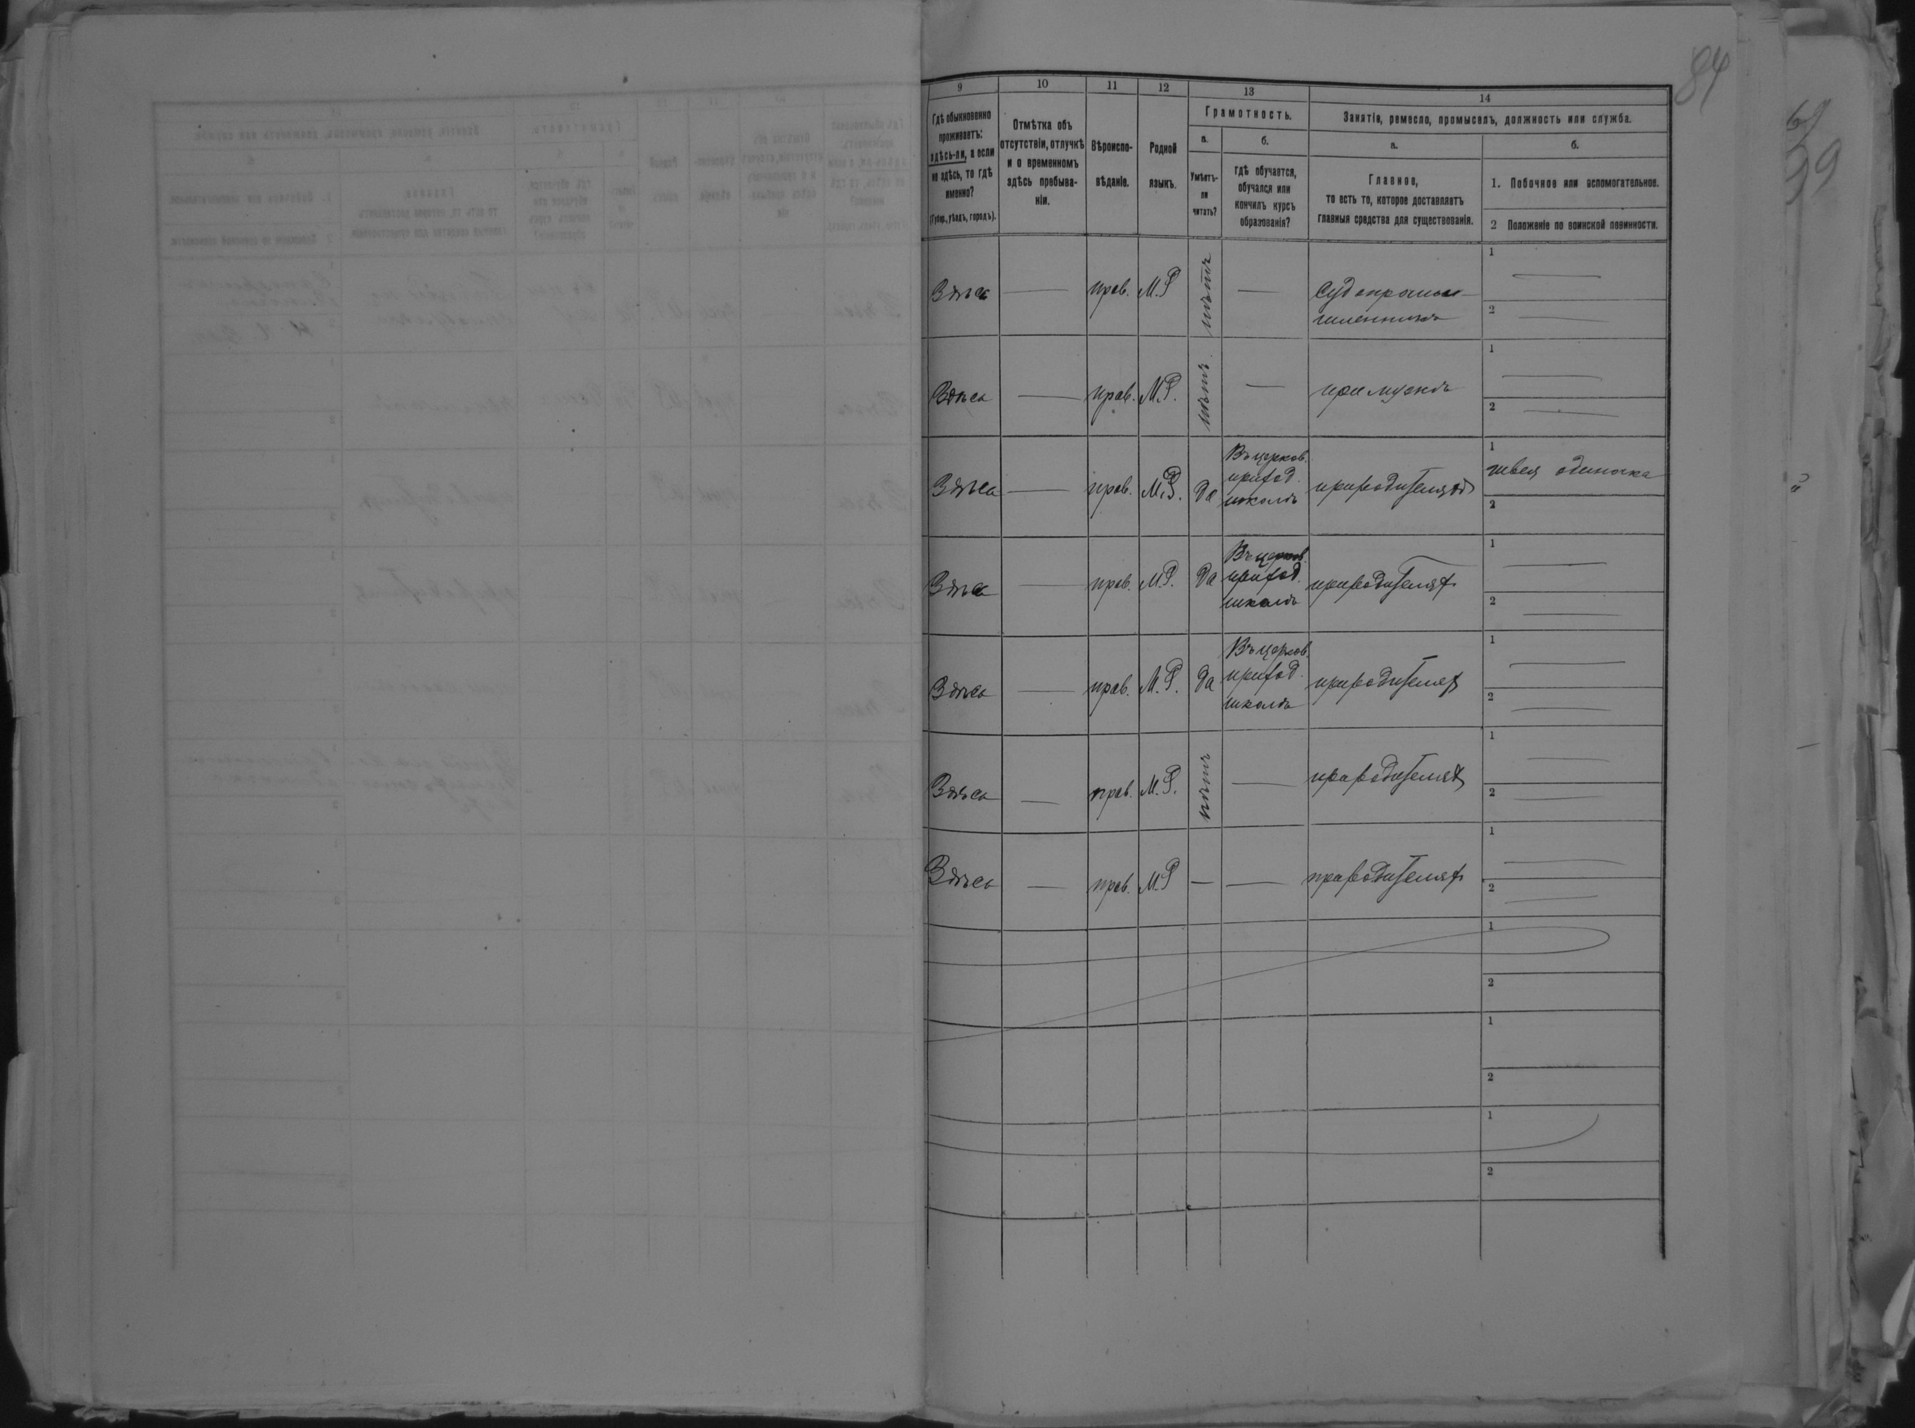 84
69
39
9 10 11 12 13 14
Гдѣ обыкновенно
проживаетъ:
здѣсь-ли, а если
не здѣсь, то гдѣ
именно?
(Губер., уѣздъ, городъ).
Отмѣтка объ
отсутствіи, отлучкѣ
и о временномъ
здѣсь пребыва-
ніи.
Вѣроиспо-
вѣданіе.
Родной
языкъ.
Грамотность.
а. б.
Умѣетъ-
ли
читать?
гдѣ обучается,
обучался или
кончилъ курсъ
образованія?
Занятіе, ремесло, промыселъ, должность или служба.
а. б.
Главное,
то есть то, которое доставляетъ
главныя средства для существованія.
1. Побочное или вспомогательное.
2 Положеніе по воинской повинности.
Здѣсь — прав. М.Р нѣтъ — Судопромы-
шленникъ
1 —
2 —
Здѣсь — прав. М.Р. нѣтъ — при мужѣ
1 —
2 —
Здѣсь — прав. М.Р. да Въ церков.
приход.
школѣ
при родителяхъ
1 швея одиночка
2
Здѣсь — прав. М.Р. да Въ церков.
приход.
школѣ
при родителях
1 —
2 —
Здѣсь — прав. М.Р. да Въ церков.
приход.
школѣ
при родителях
1 —
2 —
Здѣсь — прав. М.Р. нѣтъ — при родителях
1 —
2 —
Здѣсь — прав. М.Р — — при родителях
1 —
2 —
1
2
1
2
1
2